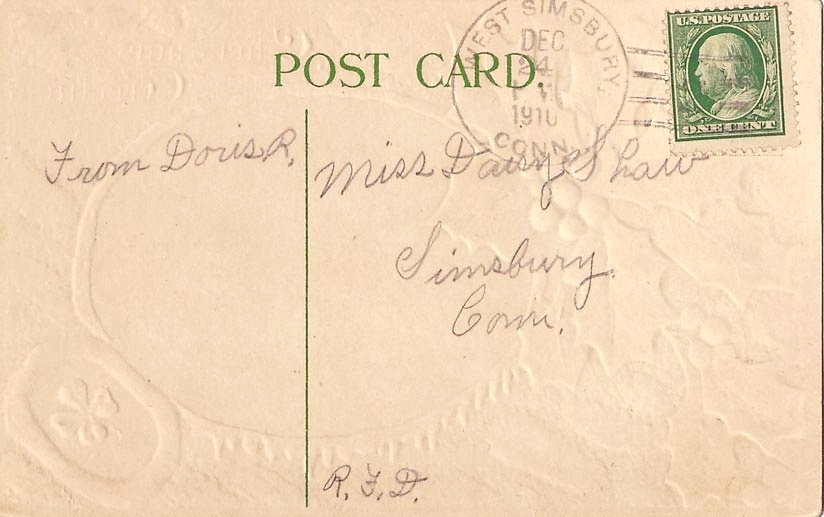 WEST SIMSBURY,
DEC
24
1910
CONN.
U.S. POSTAGE
ONE CENT
POST CARD.
From Doris R.
Miss Daisy Shaw
Simsbury
Conn.
R.F.D.